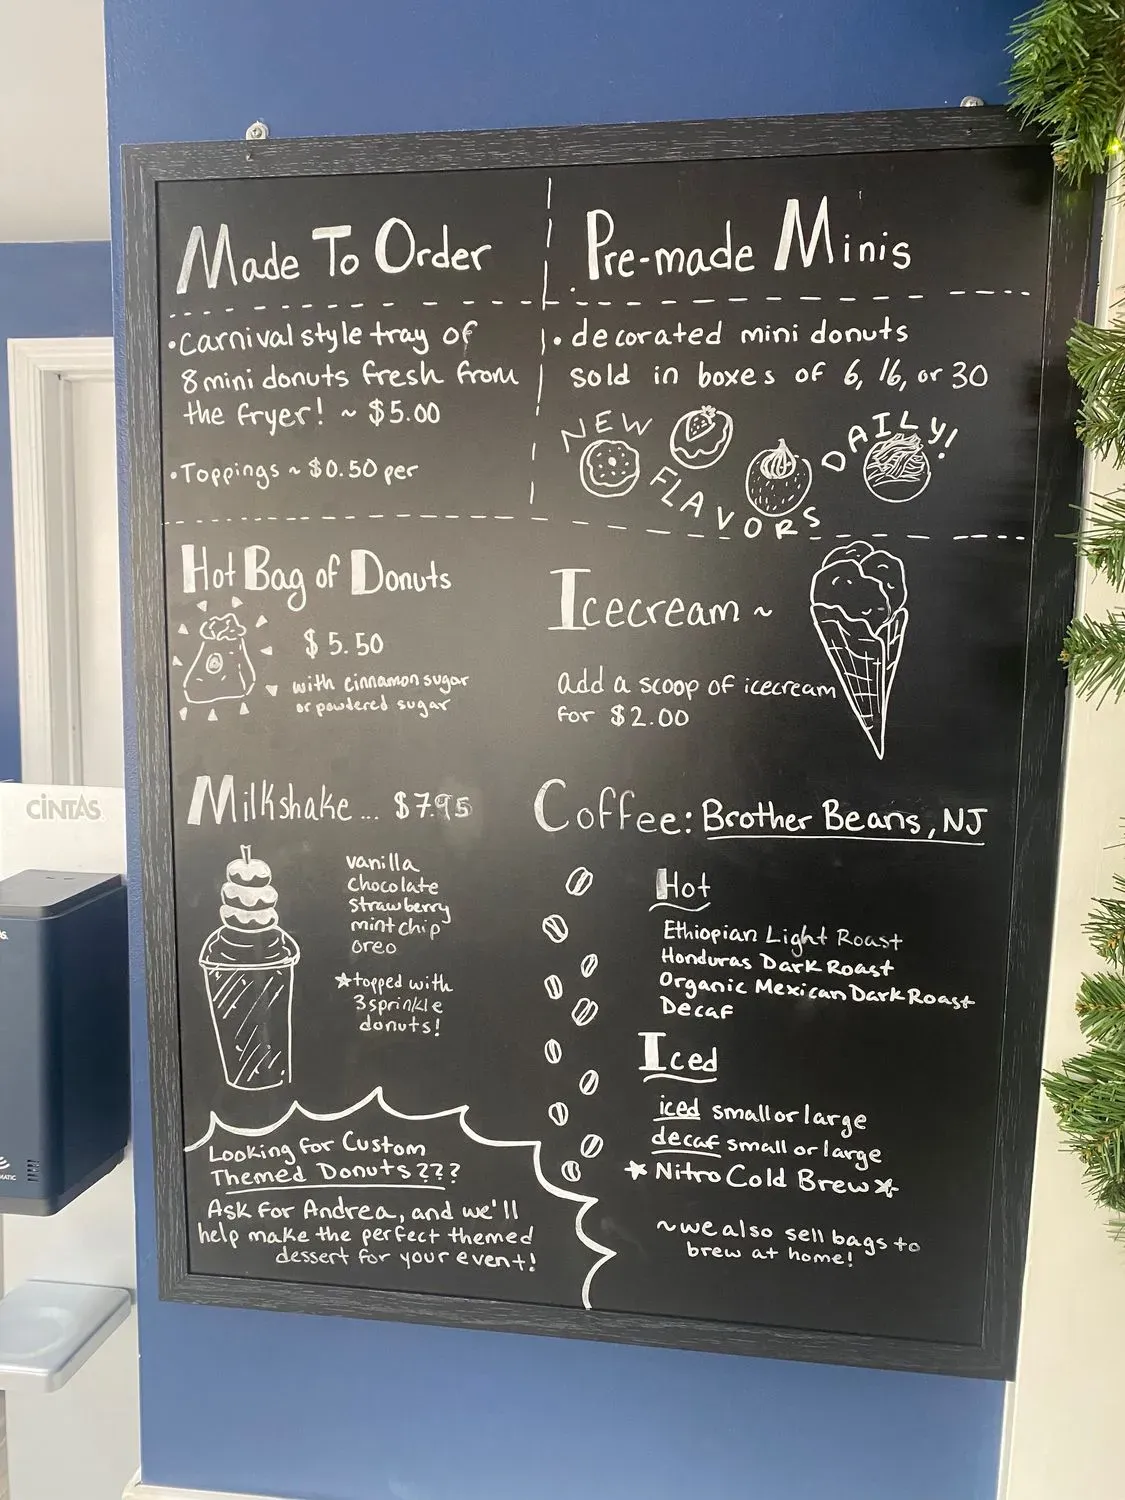 Made To Order
• Carnival style tray of
8 mini donuts fresh from
the fryer! ~ $5.00
• Toppings ~ $0.50 per
Pre-made Minis
• decorated mini donuts
sold in boxes of 6, 16, or 30
NEW
FLAVORS
DAILY!
Hot Bag of Donuts
$5.50
with cinnamon sugar
or powdered sugar
Icecream ~
add a scoop of icecream
for $2.00
Milkshake... $7.95
vanilla
chocolate
strawberry
mint chip
oreo
★topped with
3 sprinkle
donuts!
Coffee: Brother Beans, NJ
Hot
Ethiopian Light Roast
Honduras Dark Roast
Organic Mexican Dark Roast
Decaf
Iced
iced small or large
decaf small or large
★ Nitro Cold Brew ★
~ we also sell bags to
brew at home!
Looking for Custom
Themed Donuts???
Ask for Andrea, and we'll
help make the perfect themed
dessert for your event!
CINTAS